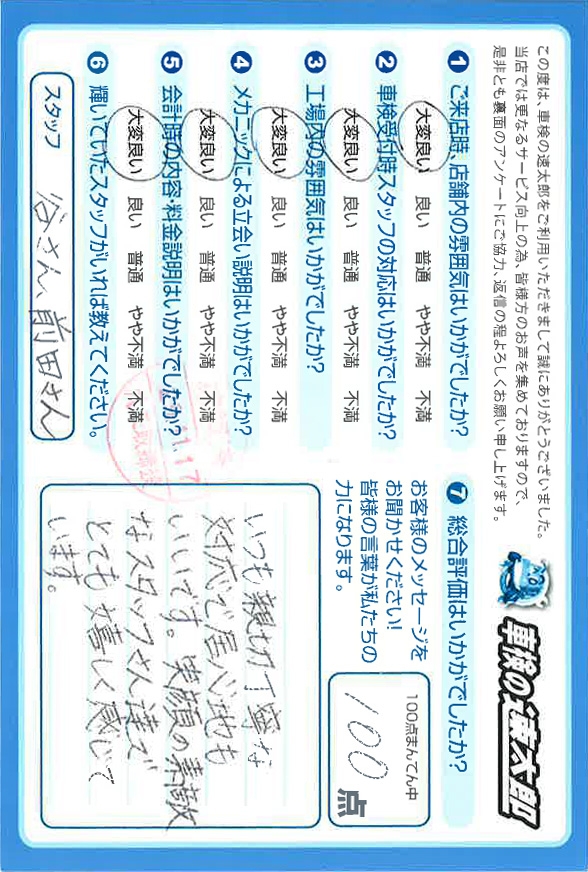 この度は、車検の速太郎をご利用いただきまして誠にありがとうございました。
当店では更なるサービス向上の為、皆様方のお声を集めておりますので、
是非とも裏面のアンケートにご協力、返信の程よろしくお願い申し上げます。
車検の速太郎
1 ご来店時、店舗内の雰囲気はいかがでしたか?
大変良い 良い 普通 やや不満 不満
2 車検受付時スタッフの対応はいかがでしたか?
大変良い 良い 普通 やや不満 不満
3 工場内の雰囲気はいかがでしたか?
大変良い 良い 普通 やや不満 不満
4 メカニックによる立会い説明はいかがでしたか?
大変良い 良い 普通 やや不満 不満
5 会計時の内容・料金説明はいかがでしたか?
大変良い 良い 普通 やや不満 不満
6 輝いていたスタッフがいれば教えてください。
スタッフ 谷さん、前田さん
7 総合評価はいかがでしたか?
お客様のメッセージを
お聞かせください!
皆様の言葉が私たちの
力になります。
100点まんてん中
100 点
いつも親切丁寧な
対応で居心地も
いいです。笑顔の素敵
なスタッフさん達で
とても嬉しく感じて
います。
11.17